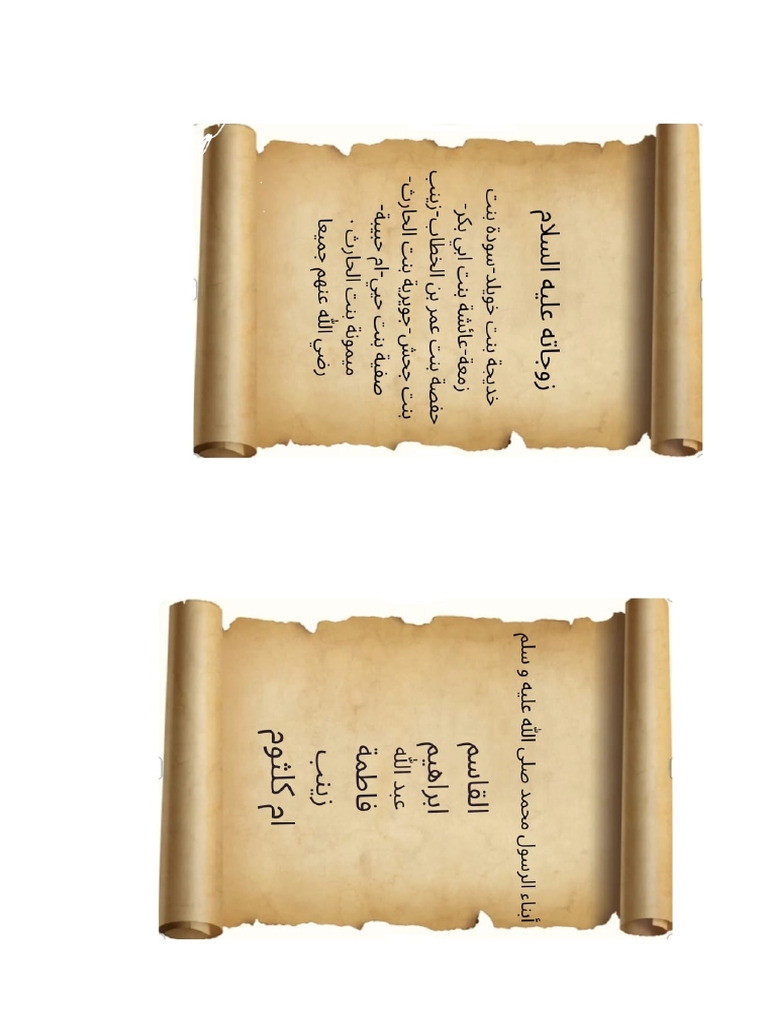 زوجاته عليه السلام
خديجة بنت خويلد-سودة بنت
زمعة-عائشة بنت ابي بكر-
حفصة بنت عمر بن الخطاب-زينب
بنت جحش-جويرية بنت الحارث-
صفية بنت حيي-ام حبيبة-
ميمونة بنت الحارث .
رضي الله عنهم جميعا
أبناء الرسول محمد صلى الله عليه و سلم
القاسم
ابراهيم
عبد الله
فاطمة
زينب
ام كلثوم